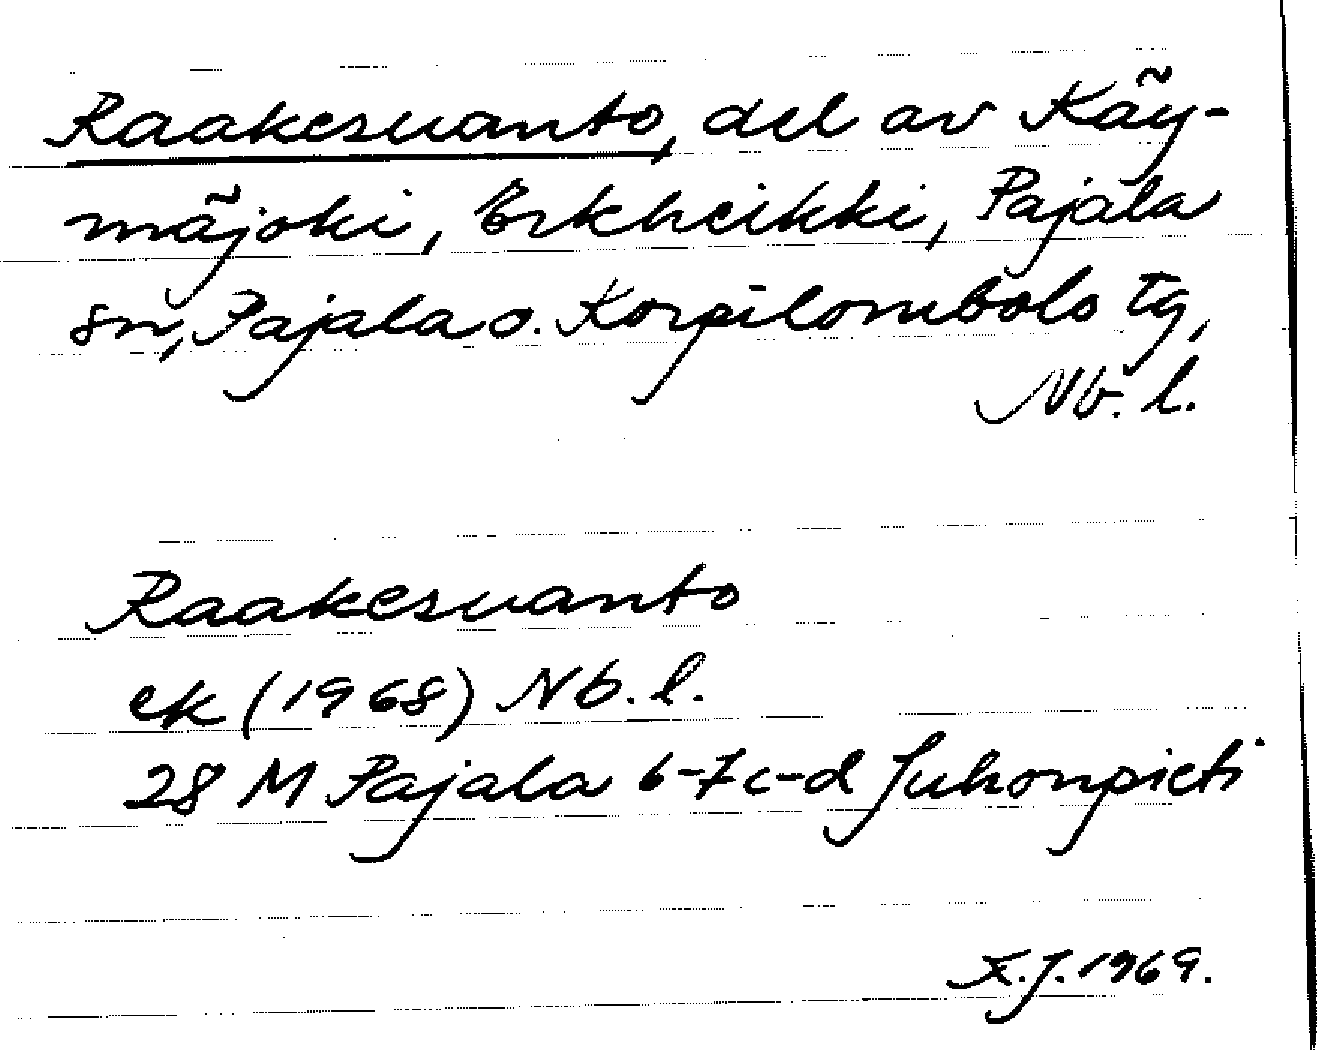 Raakesuanto, del av Käy-
mäjoki, Erkheikki, Pajala
sn, Pajala o. Korpilombolo tg,
Nb. l.
Raakesuanto
ek (1968) Nb. l.
28 M Pajala 6-7c-d Juhonpieti
X.J. 1969.